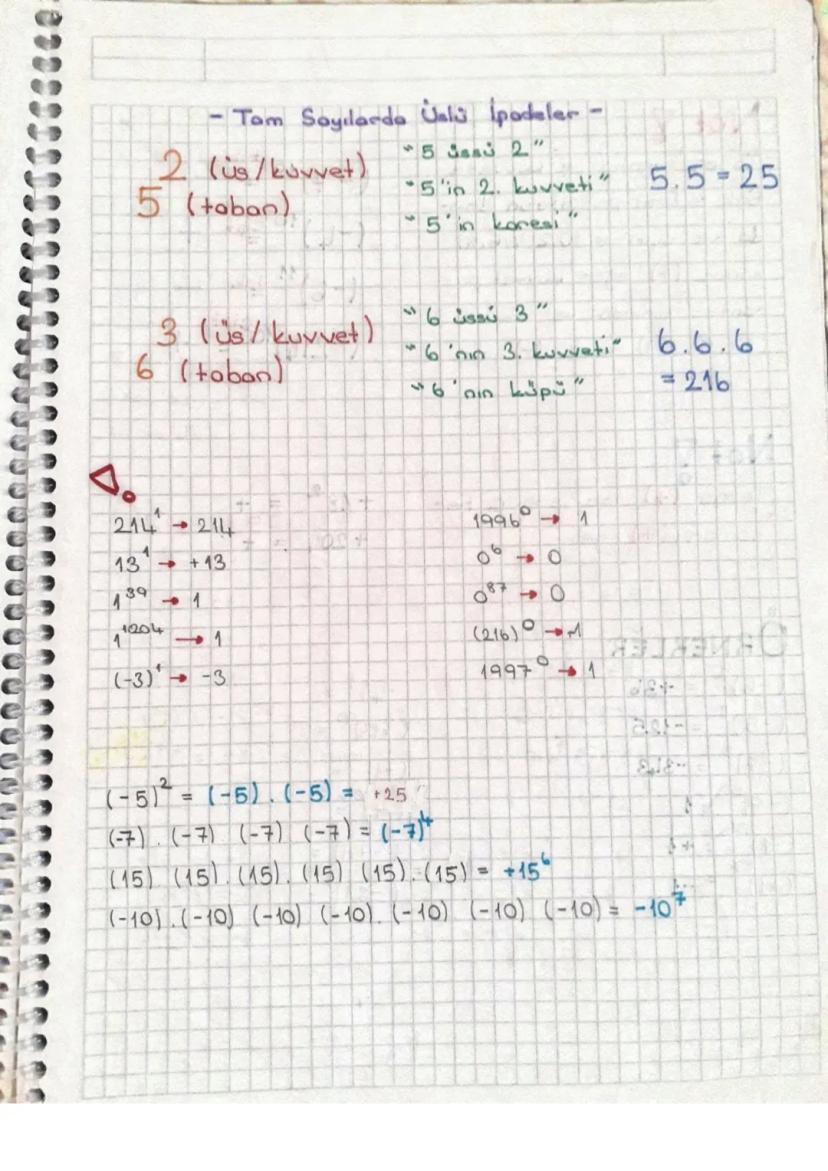 - Tam Sayılarda Üslü İfadeler -
2 (üs / kuvvet)
5 (taban)
"5 üssü 2"
"5'in 2. kuvveti"
"5'in karesi"
5.5 = 25
3 (üs / kuvvet)
6 (taban)
"6 üssü 3"
"6'nın 3. kuvveti"
"6'nın küpü"
6.6.6
= 216
214¹ → 214
13¹ → +13
1³⁹ → 1
1¹²⁰⁴ → 1
(-3)¹ → -3
1996⁰ → 1
0⁶ → 0
0⁸⁷ → 0
(216)⁰ → 1
1997⁰ → 1
(-5)² = (-5) . (-5) = +25
(-7) . (-7) (-7) (-7) = (-7)⁴
(15) (15) . (15) . (15) (15) . (15) = +15⁶
(-10) . (-10) (-10) (-10) . (-10) (-10) (-10) = -10⁷